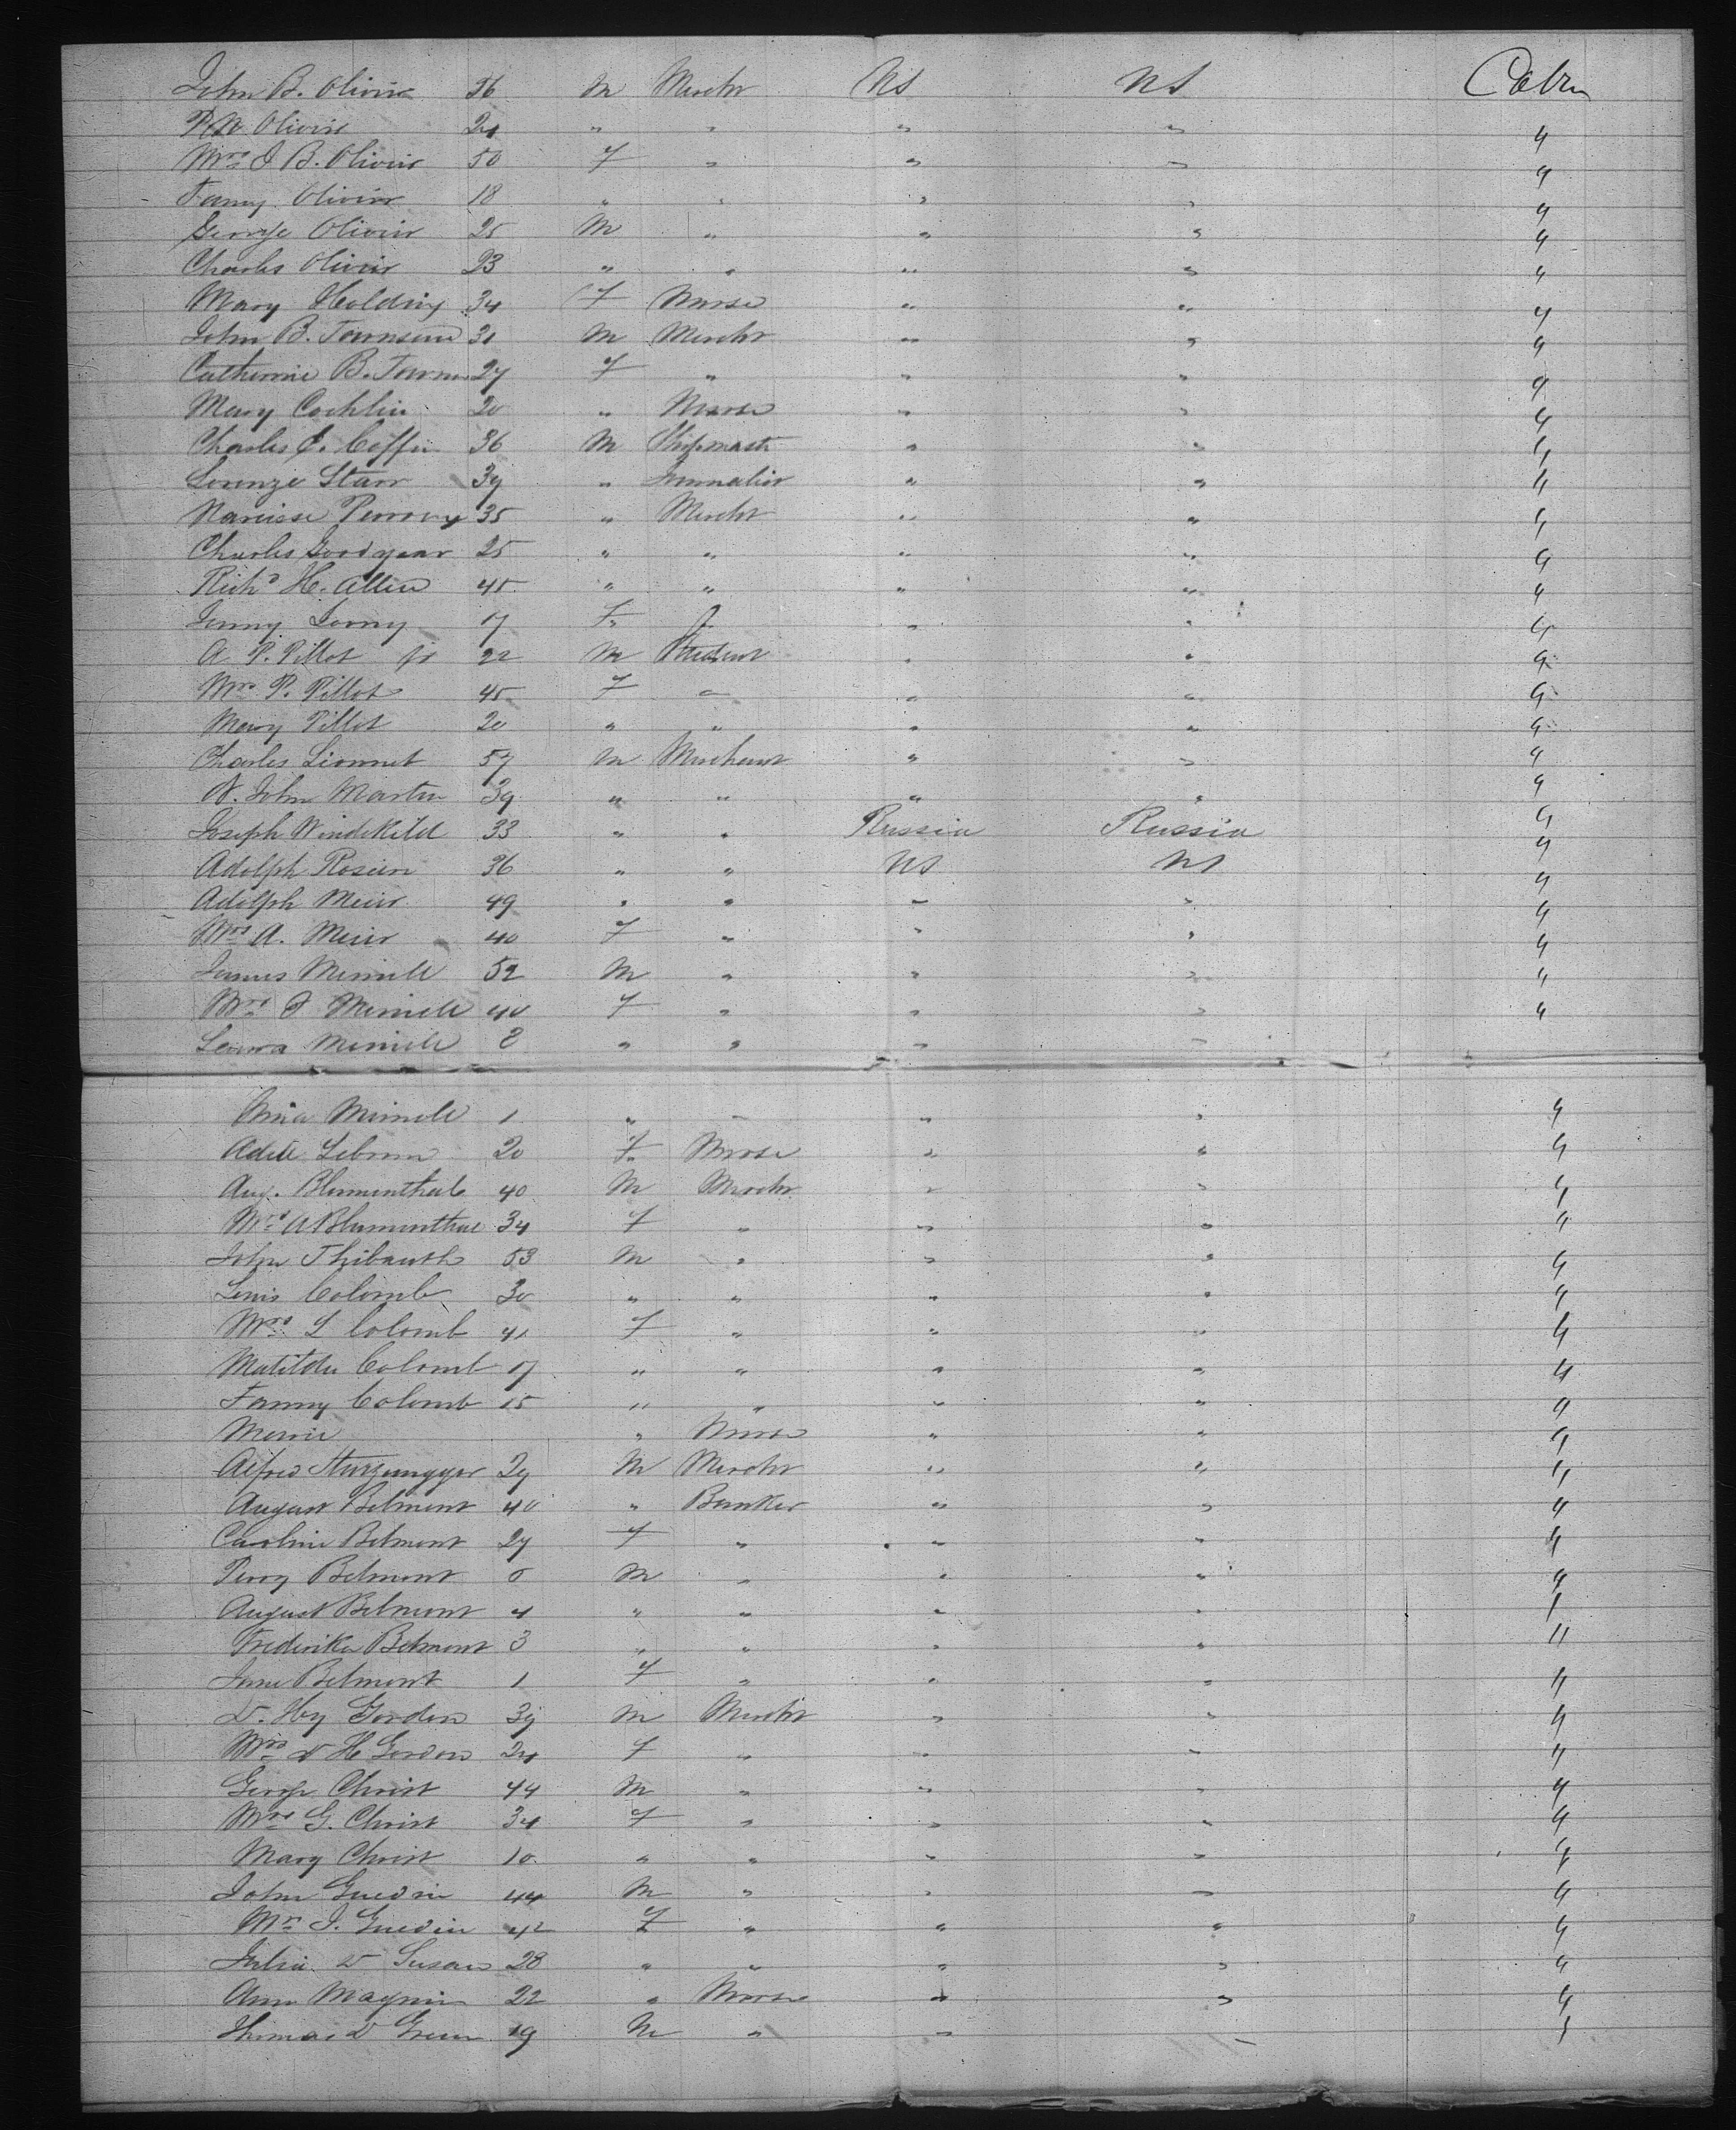 John B. Olivir 56 M Mercht US US Cabin
P. W Olivir 24 " " " " "
Mrs J B. Olivir 50 F " " " "
Fanny Olivir 18 " " " " "
George Olivir 25 M " " " "
Charles Olivir 23 " " " " "
Mary Holding 34 F Nurse " " "
John B. Townsend 31 M Mercht " " "
Catherine B. Towns 27 F " " " "
Mary Cochlin 20 " Nurse " " "
Charles J. Coffin 36 M Shipmastr " " "
Lorenzo Starr 39 " Journalist " " "
Narcisse Perrory 35 " Mercht " " "
Charles Goodyear 25 " " " " "
Richd H. Allen 45 " " " " "
Jenny Lorny 17 F " " "
A P. Pillot jr 22 M Student " " "
Mrs P. Pillot 45 F " " " "
Mary Pillot 20 " " " " "
Charles Lionnet 57 M Merchant " " "
N. John Martin 39 " " " " "
Joseph Windskild 33 " " Russia Russia "
Adolph Rosien 36 " " US US "
Adolph Meier 49 " " " " "
Mrs A. Meier 40 F " " " "
James Meinell 52 M " " " "
Mrs J Meinell 40 F " " " "
Laura Meinell 2 " " " "
Nina Meinell 1 " " " " "
Adele Lebrun 20 F Nurse " " "
Aug. Blumenthal 40 M Mercht " " "
Mrs A Blumenthal 34 F " " " "
John Thibauth 53 M " " " "
Louis Colomb 30 " " " " "
Mrs L Colomb 41 F " " " "
Matilda Colomb 17 " " " " "
Fanny Colomb 15 " " " " "
Marie " Nurse " " "
Alfred 29 M Mercht " " "
August Belmont 40 " Banker " " "
Caroline Belmont 27 F " " " "
Perry Belmont 5 M " " " "
August Belmont 4 " " " " "
Frederika Belmont 3 " " " " "
Jane Belmont 1 F " " " "
D. Hy Gordon 39 M Mercht " " "
Mrs D H Gordon 24 F " " " "
George Christ 44 M " " " "
Mrs G. Christ 34 F " " " "
Mary Christ 10 " " " " "
John Guedin 44 M " " " "
Mrs J. Guedin 42 F " " " "
Julia D Susan 28 " " " " "
Ann Magnin 22 " Nurse " " "
Thomas D Green 19 M " " " "